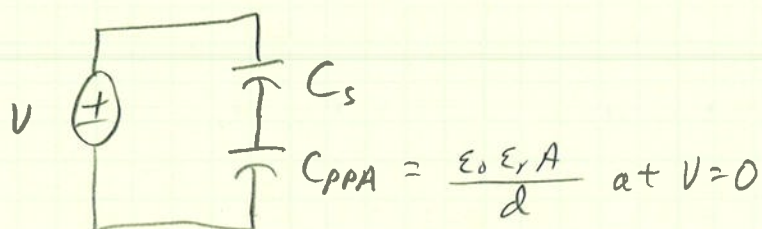 V ± C_s
C_PPA = ε₀ εᵣ A / d at V=0